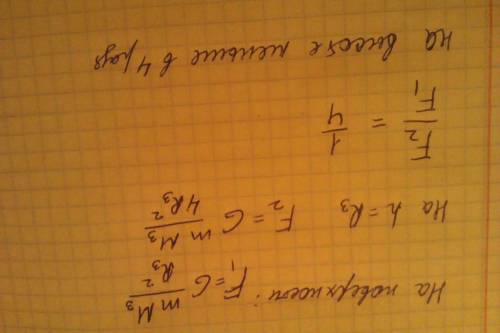 На поверхности: F₁ = G mM₃ / R₃²
На h = R₃ F₂ = G mM₃ / 4R₃²
F₂ / F₁ = 1 / 4
На высоте меньше в 4 раза